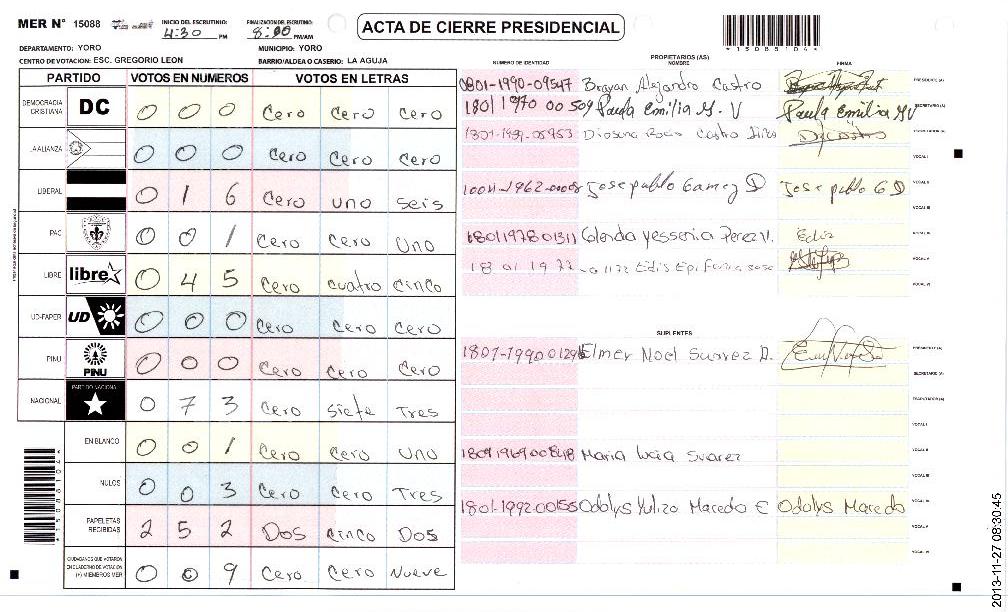 MER N° 15088
INICIO DEL ESCRUTINIO: 4:30 PM
FINALIZACION DEL ESCRUTINIO: 8:00 PM/AM
ACTA DE CIERRE PRESIDENCIAL
*15088104*
DEPARTAMENTO: YORO
MUNICIPIO: YORO
CENTRO DE VOTACION: ESC. GREGORIO LEON
BARRIO/ALDEA O CASERIO: LA AGUJA
PARTIDO VOTOS EN NUMEROS VOTOS EN LETRAS
DEMOCRACIA CRISTIANA DC 0 0 0 Cero Cero Cero
LA ALIANZA 0 0 0 Cero Cero Cero
LIBERAL 0 1 6 Cero uno seis
PAC 0 0 1 Cero Cero Uno
LIBRE libre 0 4 5 Cero cuatro cinco
UD-FAPER UD 0 0 0 Cero Cero Cero
PINU PINU 0 0 0 Cero Cero Cero
NACIONAL PARTIDO NACIONAL 0 7 3 Cero Siete Tres
EN BLANCO 0 0 1 Cero Cero uno
NULOS 0 0 3 Cero Cero Tres
PAPELETAS RECIBIDAS 2 5 2 Dos cinco Dos
CIUDADANOS QUE VOTARON EN CUADERNO DE VOTACION (+) MIEMBROS MER 0 0 9 Cero Cero Nueve
*15088104*
PROPIETARIOS (AS)
NUMERO DE IDENTIDAD NOMBRE FIRMA
0801-1990-09547 Brayan Alejandro Castro PRESIDENTE (A)
1801 1970 00509 Paula Emilia G. V Paula Emilia GV SECRETARIO (A)
Castro
VOCAL I
Jose pablo Gamez D Jose pablo G D VOCAL II
VOCAL III
1801197801311 Glenda Yessenia Perez V. VOCAL IV
VOCAL V
VOCAL VI
SUPLENTES
Elmer Noel Suarez A. PRESIDENTE (A)
SECRETARIO (A)
ESCRUTADOR (A)
VOCAL I
Maria Lucia Suarez VOCAL II
VOCAL III
1801-1992-00155 Odolys Yuliza Macedo E Odolys Macedo VOCAL IV
VOCAL V
VOCAL VI
2013-11-27 08:30:45